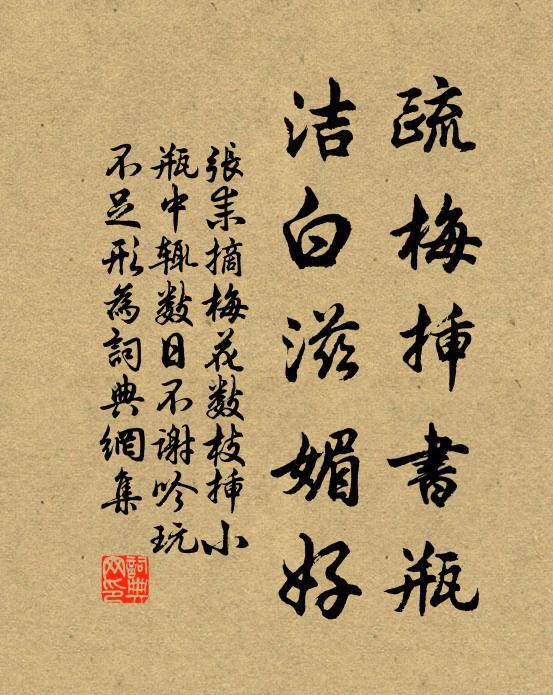 疏梅揷書瓶
洁白滋媚好
張耒摘梅花数枝揷小
瓶中辄数日不謝吟玩
不足形為詞典網集
詞典网印